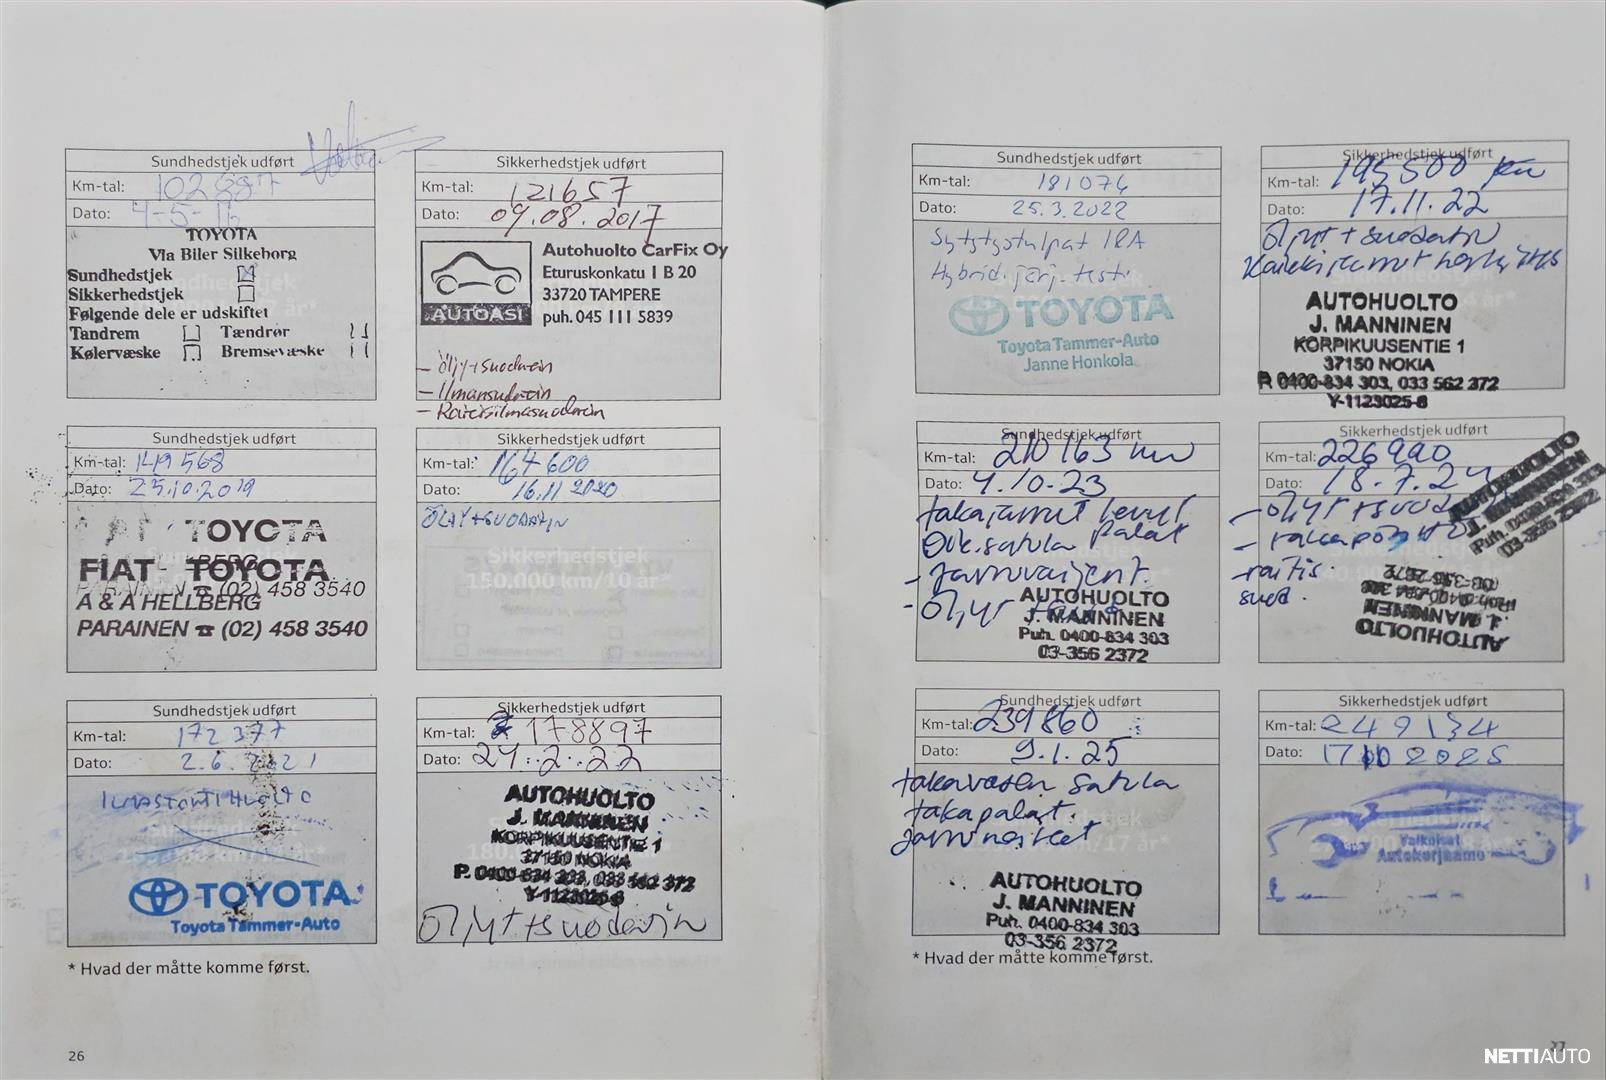 Sundhedstjek udført
Km-tal: 102887
Dato: 4-5-16
TOYOTA
Via Biler Silkeborg
Sundhedstjek
Sikkerhedstjek
Følgende dele er udskiftet
Tandrem Tændrør
Kølervæske Bremsevæske
Sikkerhedstjek udført
Km-tal: 121657
Dato: 09.08.2017
Autohuolto CarFix Oy
Eturuskonkatu 1 B 20
33720 TAMPERE
AUTOASI puh. 045 111 5839
- Öljy+suodatin
- Ilmansuodatin
- Raitisilmasuodatin
Sundhedstjek udført
Km-tal: 149568
Dato: 25.10.2019
FIAT TOYOTA
BERG
FIAT TOYOTA
PARAINEN ☎ (02) 458 3540
A & A HELLBERG
PARAINEN ☎ (02) 458 3540
Sikkerhedstjek udført
Km-tal: 164600
Dato: 16.11 2020
ÖLJY+SUODATIN
Sikkerhedstjek
150.000 km/10 år*
Sundhedstjek udført
Km-tal: 172377
Dato: 2.6.2021
ILMASTOINTIHUOLTO
TOYOTA
Toyota Tammer-Auto
Sikkerhedstjek udført
Km-tal: 178897
Dato: 24.2.22
AUTOHUOLTO
J. MANNINEN
KORPIKUUSENTIE 1
37150 NOKIA
P. 0400-834 303, 033 562 372
Y-1123025-8
Öljyt+suodatin
* Hvad der måtte komme først.
26
Sundhedstjek udført
Km-tal: 181074
Dato: 25.3.2022
Sytytystulpat IRA
Hybrid. järj. test.
TOYOTA
Toyota Tammer-Auto
Janne Honkola
Sikkerhedstjek udført
Km-tal: 195500 km
Dato: 17.11.22
Öljyt+suodatin
AUTOHUOLTO
J. MANNINEN
KORPIKUUSENTIE 1
37150 NOKIA
P. 0400-834 303, 033 562 372
Y-1123025-8
Sundhedstjek udført
Km-tal: 210163 km
Dato: 4.10.23
takajarrut levyt
Oik. satula Palat
- Jarruv.
- Öljyt
AUTOHUOLTO
J. MANNINEN
Puh. 0400-834 303
03-356 2372
Sikkerhedstjek udført
Km-tal: 226990
Dato: 18.7.24
- öljyt+suod
- raitis.
suod.
AUTOHUOLTO
J. MANNINEN
Puh. 0400-834 303
03-356 2372
AUTOHUOLTO
J. MANNINEN
Puh. 0400-834 303
03-356 2372
Sundhedstjek udført
Km-tal: 239860
Dato: 9.1.25
takavasen satula
takapalat.
jarrunesteet
AUTOHUOLTO
J. MANNINEN
Puh. 0400-834 303
03-356 2372
Sikkerhedstjek udført
Km-tal: 249134
Dato: 17 10 2025
Valkoiset
Autokorjaamo
* Hvad der måtte komme først.
27
NETTIAUTO